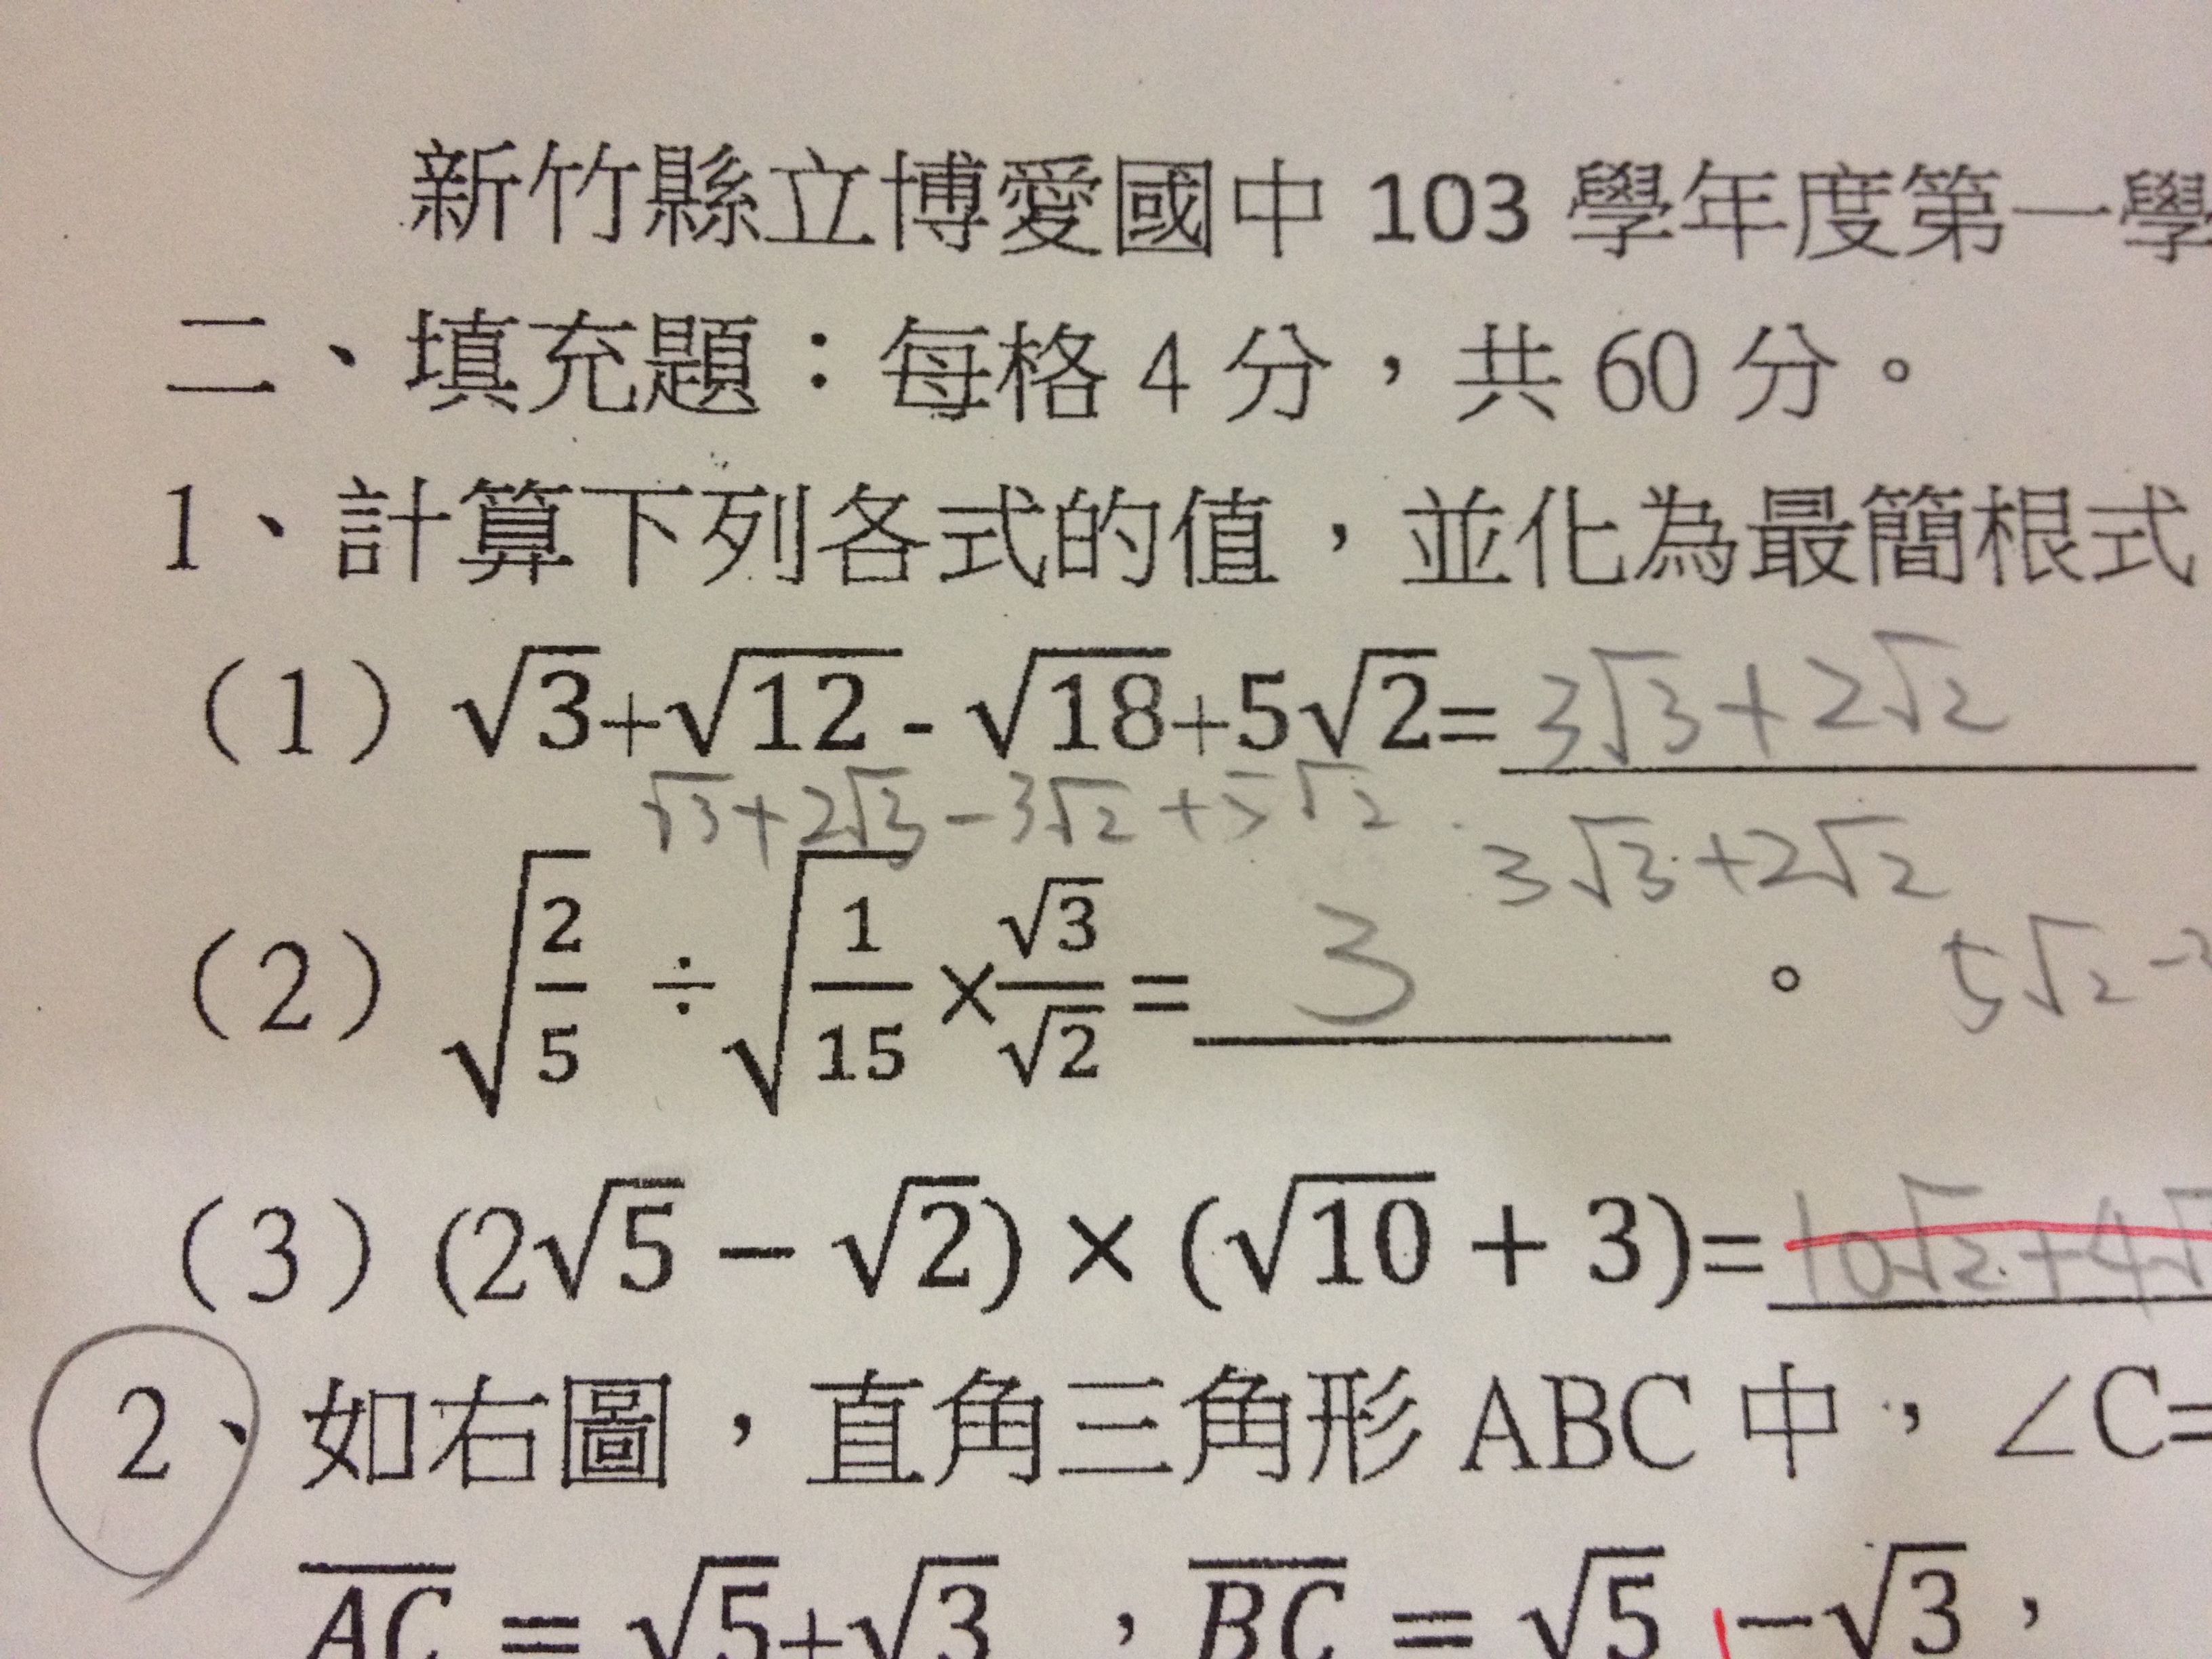 新竹縣立博愛國中 103 學年度第一學
二、填充題：每格 4 分，共 60 分。
1、計算下列各式的值，並化為最簡根式
（1）√3+√12- √18+5√2= 3√3+2√2
√3+2√3-3√2+5√2
3√3+2√2
（2）√(2/5) ÷√(1/15)×√3/√2= 3 。
5√2-3
（3）(2√5 − √2) × (√10 + 3)= 10√2+4√
2、如右圖，直角三角形 ABC 中，∠C=
AC = √5+√3 ，BC = √5 −√3，